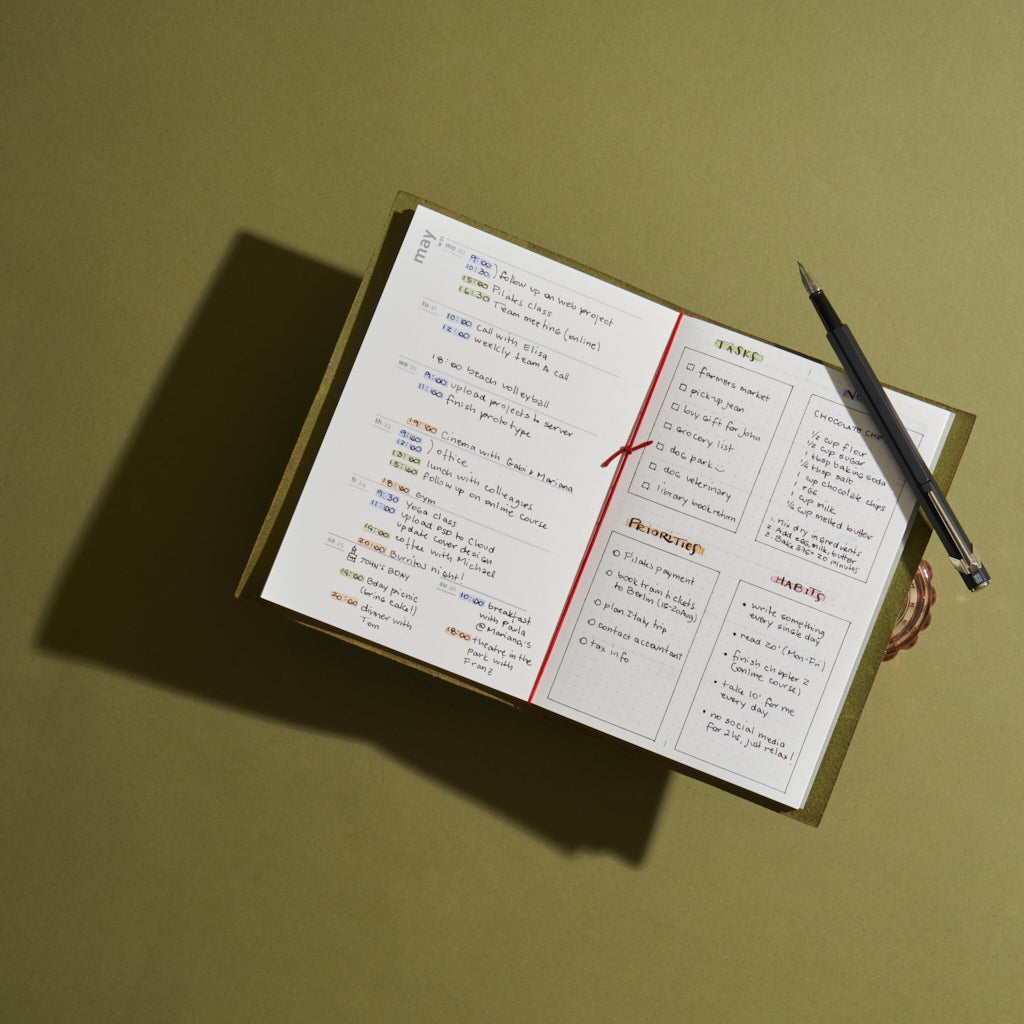 may
mo 20
9:00
10:30 ) follow up on web project
15:00 Pilates class
16:30 Team meeting (online)
tu 21
10:00 call with Elisa
12:00 weekly team A call
18:00 beach volleyball
we 22
9:00 upload projects to server
11:00 finish prototype
19:00 Cinema with Gabi & Mariana
th 23
9:00
12:00 ) office
13:00 lunch with colleagues
15:00 follow up on online course
18:00 Gym
fr 24
9:30 Yoga class
11:00 upload PSD to Cloud
update cover design
19:00 coffee with Michael
20:00 Burritos night!
sa 25
JOHN'S BDAY
16:00 Bday picnic
(bring cake!)
20:00 dinner with
Tom
su 26
10:00 breakfast
with Paula
@Mariana's
18:00 theatre in the
park with
Franz
TASKS
farmers market
pick-up jean
buy gift for John
grocery list
dog park
dog veterinary
library book return
PRIORITIES
Pilates payment
book train tickets
to Berlin (15-20 Aug)
plan Italy trip
contact accountant
tax info
CHOCOLATE
1/2 cup flour
1/2 cup sugar
1 tbsp baking soda
1/4 tbsp salt
1 cup chocolate chips
1 egg
1 cup milk
1/4 cup melted butter
1. Mix dry ingredients
2. Add egg, milk, butter
3. Bake 20 minutes
HABITS
• write something
every single day
• read 20' (Mon-Fri)
• finish chapter 2
(online course)
• take 10' for me
every day
• no social media
for 2hs, just relax!